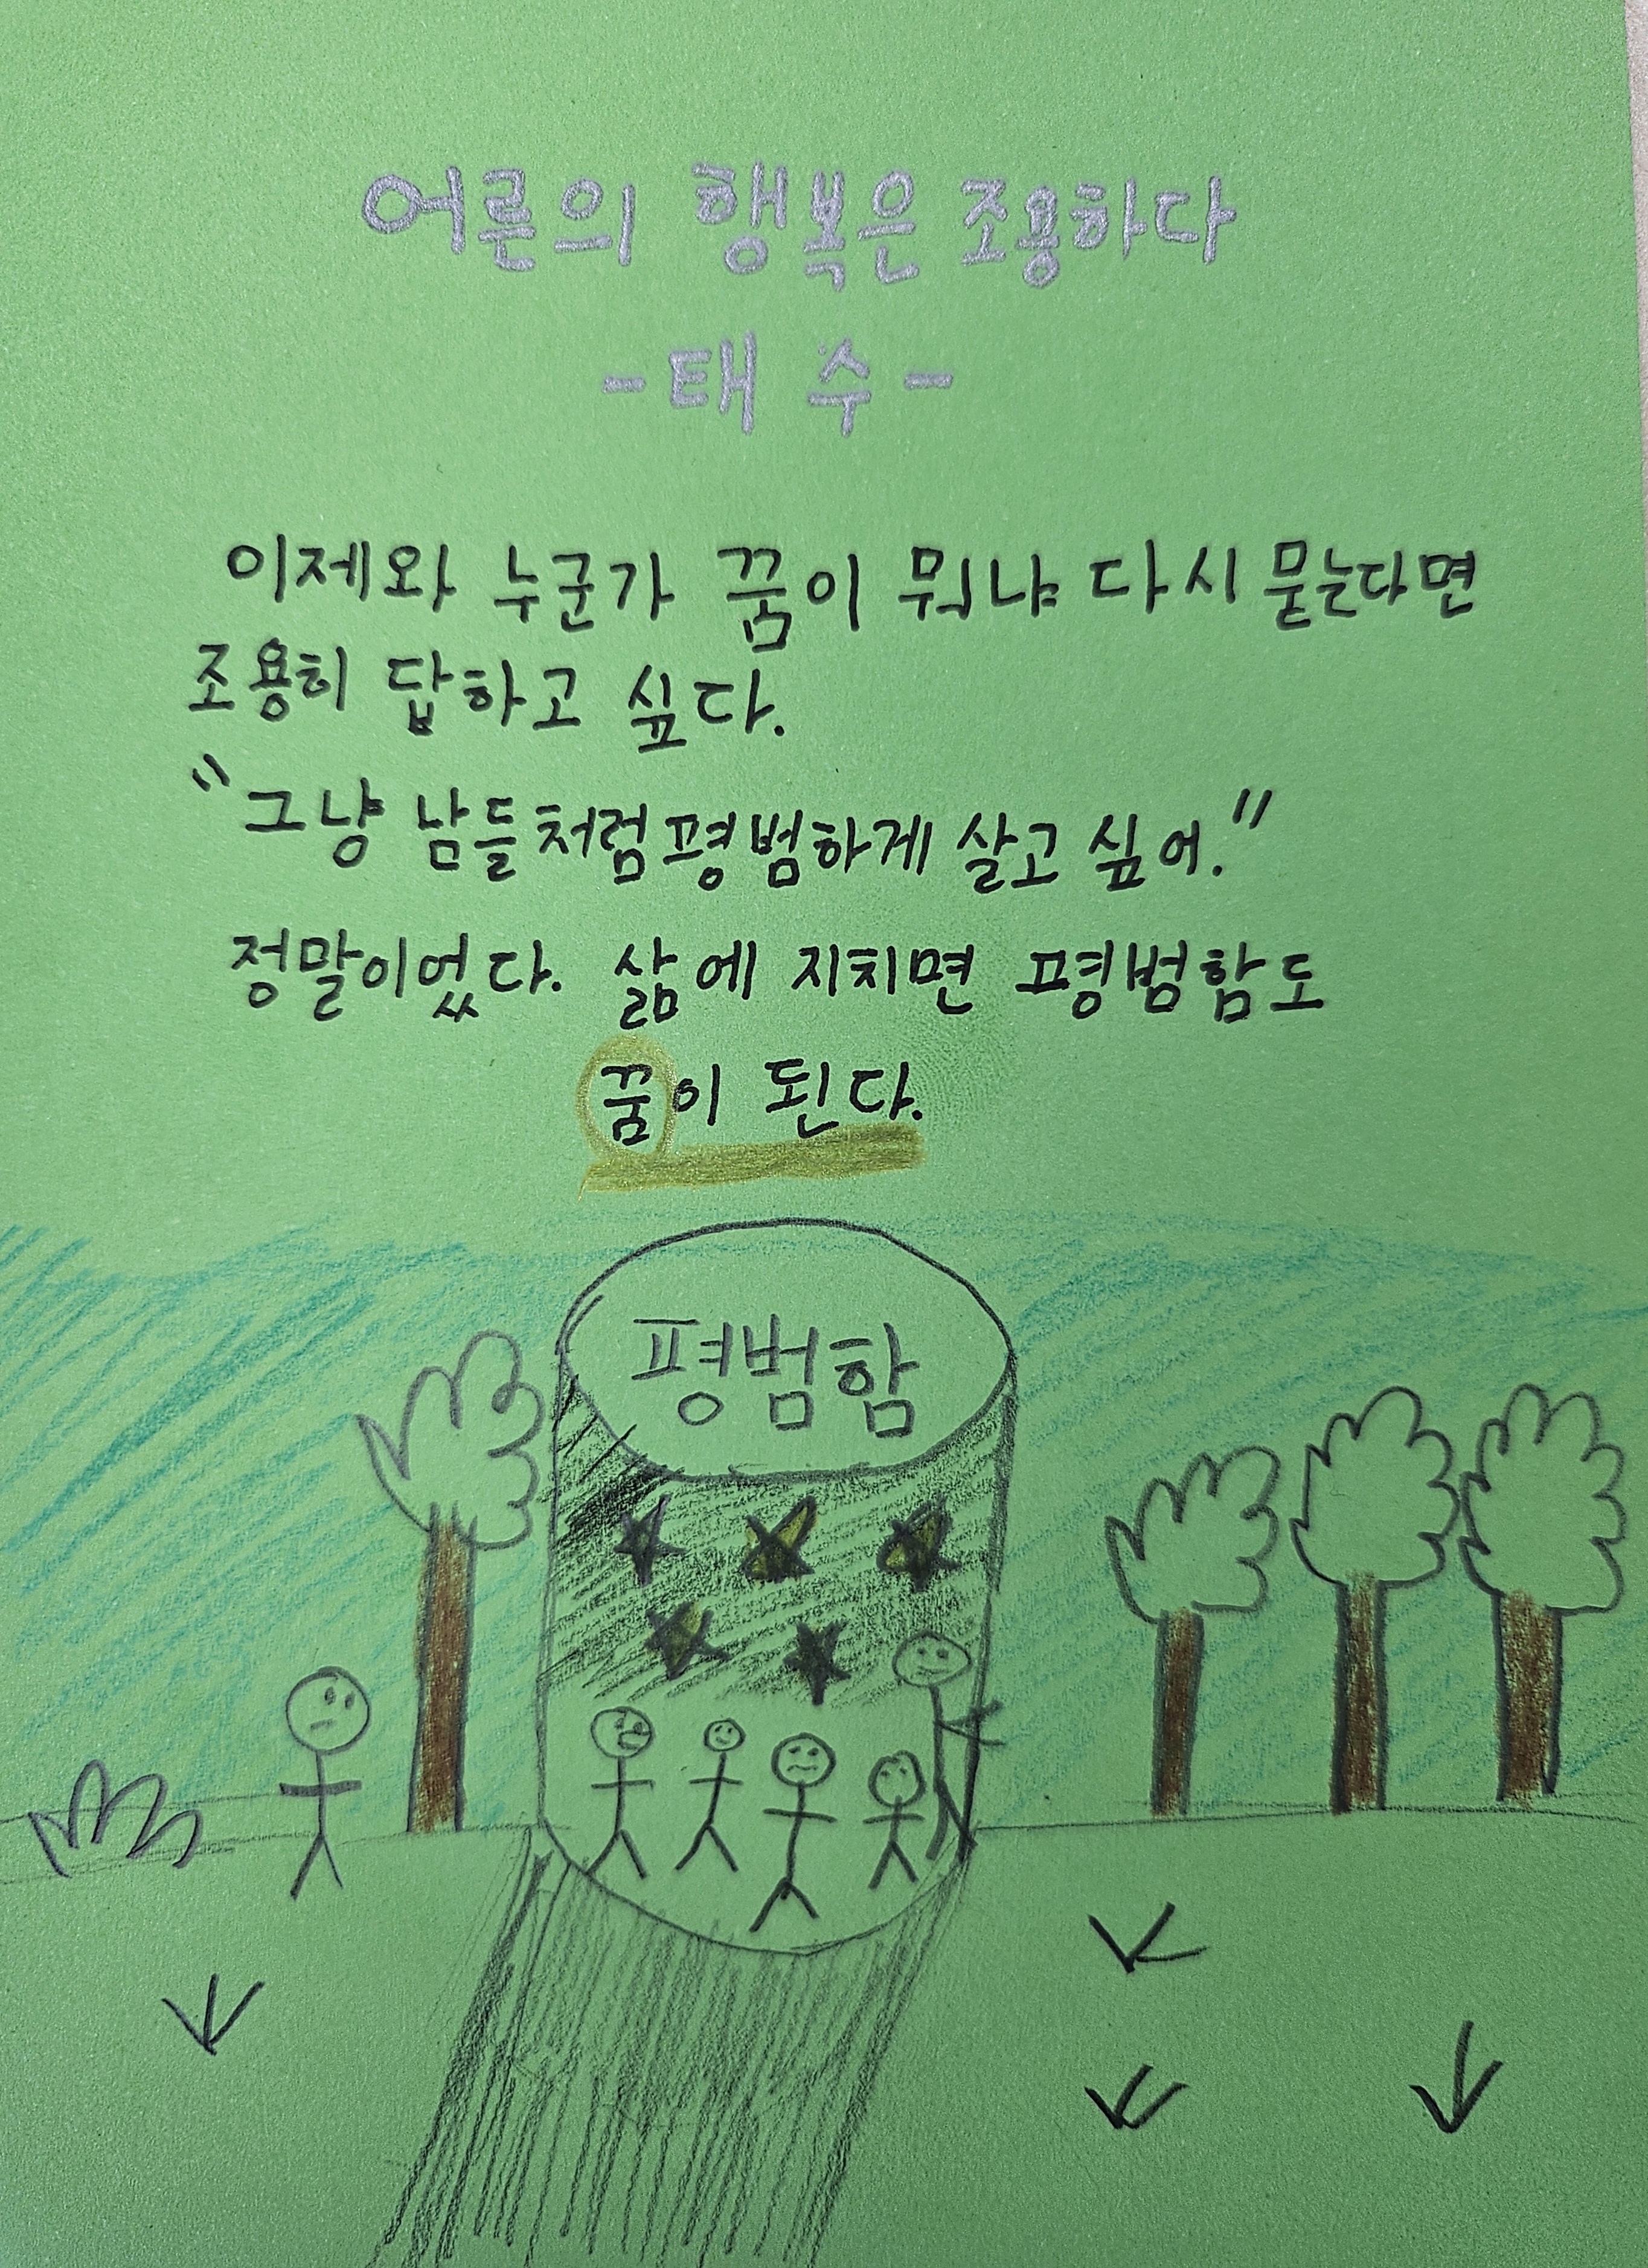 어른의 행복은 조용하다
-태수-
이제와 누군가 꿈이 뭐냐 다시 묻는다면
조용히 답하고 싶다.
"그냥 남들처럼 평범하게 살고 싶어."
정말이었다. 삶에 지치면 평범함도
꿈이 된다.
평범함